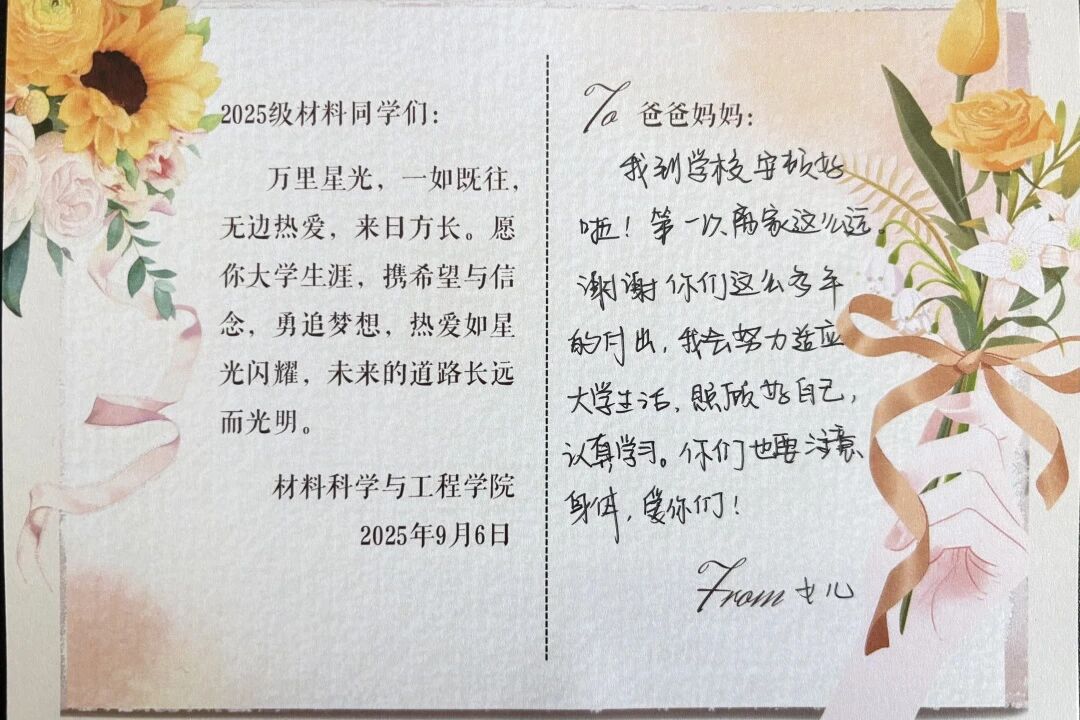 2025级材料同学们：
万里星光，一如既往，
无边热爱，来日方长。愿
你大学生涯，携希望与信
念，勇追梦想，热爱如星
光闪耀，未来的道路长远
而光明。
材料科学与工程学院
2025年9月6日
To 爸爸妈妈：
我到学校安顿好
啦！第一次离家这么远.
谢谢你们这么多年
的付出，我会努力适应
大学生活，照顾好自己，
认真学习。你们也要注意
身体，爱你们！
From 女儿